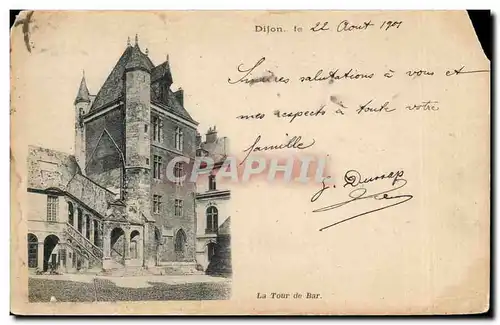 Dijon, le 22 Août 1901
Sincères salutations à vous et
mes respects à toute votre
famille
J. Dussap
CARTE PHILA
La Tour de Bar.